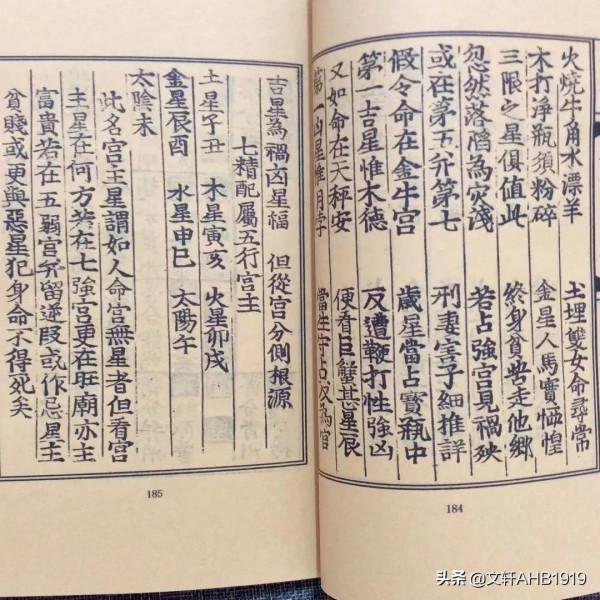 火燒牛角水漂羊 土埋雙女命尋常
木打淨瓶須粉碎 金星人馬實恓惶
三限之星俱值此 終身貧苦走他鄉
忽然落陷為災淺 若占強宮見禍殃
或在第五并第七 刑妻害子細推詳
假令命在金牛宮 歲星當占寶瓶中
第一吉星惟木德 反遭鞭打性強凶
又如命在天秤安 便看巨蟹甚星辰
第一凶星惟月孛 當生守占反為官
184
吉星為禍凶星福 但從宮分側根源
七精配屬五行宮主
土星子丑 木星寅亥 火星卯戌
金星辰酉 水星申巳 太陽午
太陰未
此名宮主星謂如人命宮無星者但看宮
主星在何方若在七強宮更在旺廟亦主
富貴若在五弱宮并留逆段或作忌星主
貧賤或更與惡星犯身命不得死矣
185
头条 @文轩AHB1919